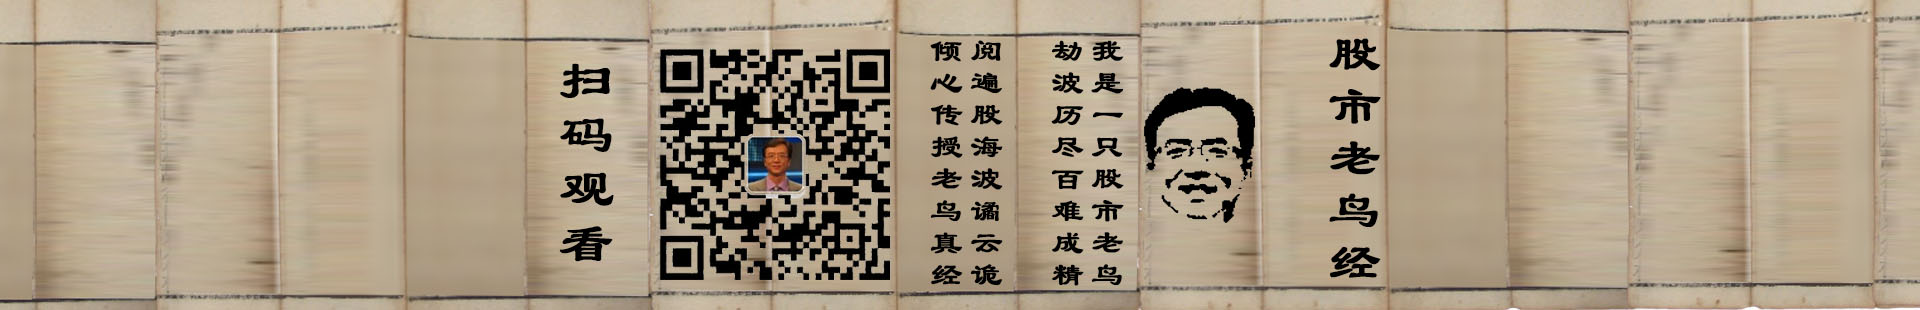 股市老鸟经
我是一只股市老鸟
劫波历尽百难成精
阅遍股海波谲云诡
倾心传授老鸟真经
扫码观看